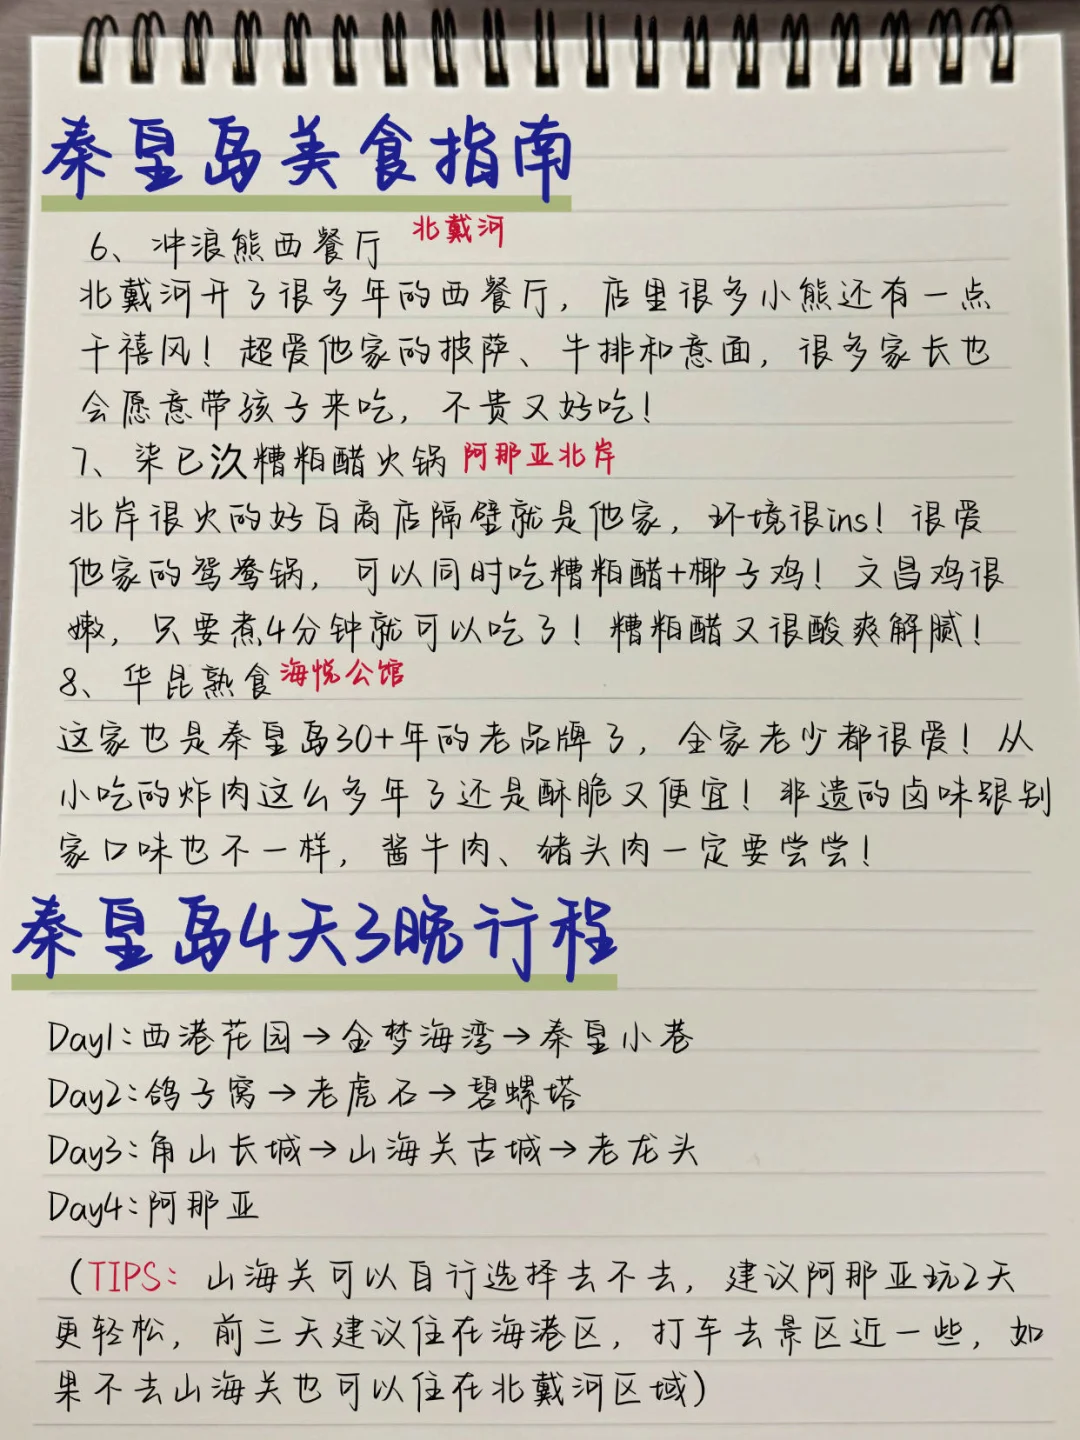 秦皇岛美食指南
6、冲浪熊西餐厅 北戴河
北戴河开了很多年的西餐厅，店里很多小熊还有一点
千禧风！超爱他家的披萨、牛排和意面，很多家长也
会愿意带孩子来吃，不贵又好吃！
7、柒已氿糟粕醋火锅 阿那亚北岸
北岸很火的好百商店隔壁就是他家，环境很ins！很爱
他家的鸳鸯锅，可以同时吃糟粕醋+椰子鸡！文昌鸡很
嫩，只要煮4分钟就可以吃了！糟粕醋又很酸爽解腻！
8、华昆熟食 海悦公馆
这家也是秦皇岛30+年的老品牌了，全家老少都很爱！从
小吃的炸肉这么多年了还是酥脆又便宜！非遗的卤味跟别
家口味也不一样，酱牛肉、猪头肉一定要尝尝！
秦皇岛4天3晚行程
Day1：西港花园→金梦海湾→秦皇小巷
Day2：鸽子窝→老虎石→碧螺塔
Day3：角山长城→山海关古城→老龙头
Day4：阿那亚
（TIPS：山海关可以自行选择去不去，建议阿那亚玩2天
更轻松，前三天建议住在海港区，打车去景区近一些，如
果不去山海关也可以住在北戴河区域）